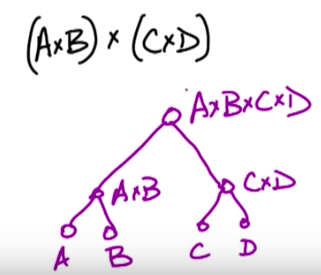 (A×B) × (C×D)
A×B×C×D
A×B C×D
A B C D